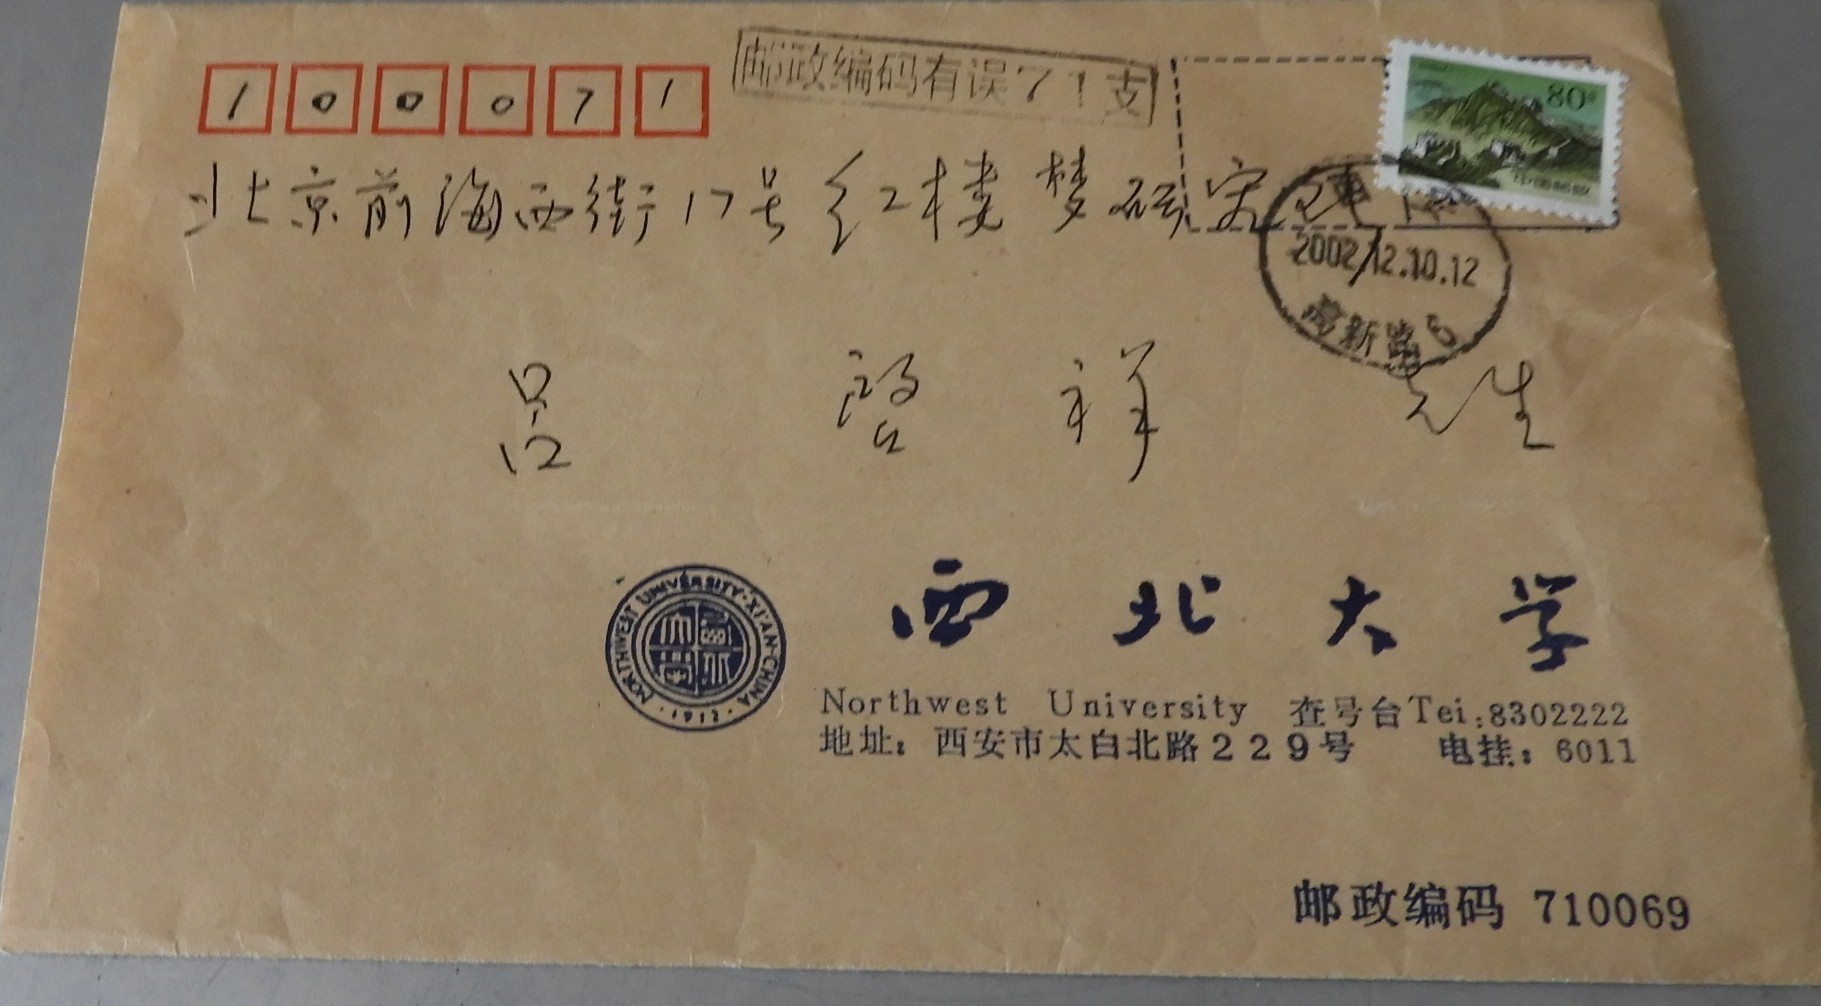 100071
邮政编码有误71支
80
中国邮政
北京前海西街17号红楼梦研究所
2002.12.10.12
高新路5
吕启祥 先生
NORTHWEST UNIVERSITY·XI'AN·CHINA
·1912·
西北大学
Northwest University 查号台Tei:8302222
地址：西安市太白北路229号 电挂：6011
邮政编码 710069